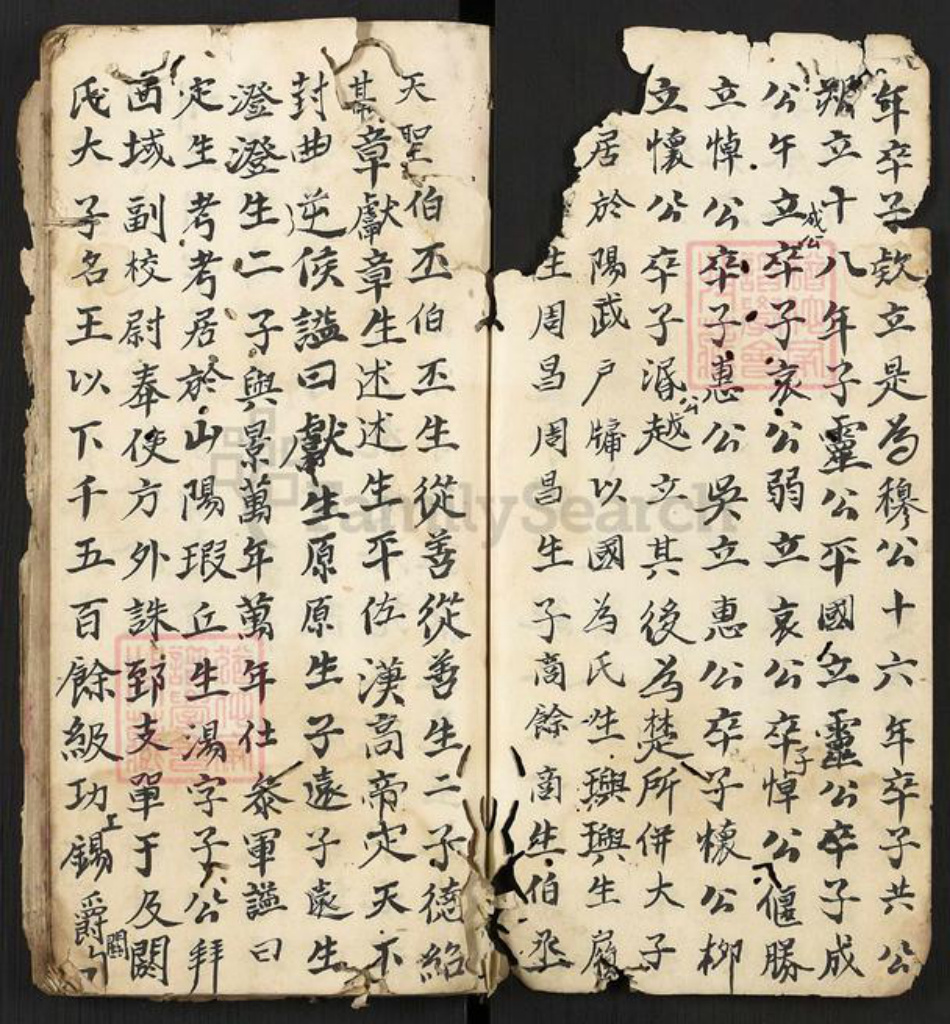 年卒子欵立是為穆公十六年卒子共公
朔立十八年子靈公平國立靈公卒子成
公午立卒子哀公弱立哀公卒子悼公偃勝
成公
立悼公卒子惠公吳立惠公卒子懷公柳
立懷公卒子湣公越立其後為楚所併大子
居於陽武户牖以國為氏生興興生履
生周昌周昌生子商餘商生伯丞
天聖伯丕伯丕生從善從善生二子德紹
其章獻章生述述生平佐漢高帝定天下
封曲逆侯謚曰獻生原原生子遠子遠生
澄澄生二子興景萬年萬年仕叅軍謚曰
定生考考居於山陽瑕丘生湯字子公拜
西域副校尉奉使方外誅郅支單于及閼
氏大子名王以下千五百餘級功錫爵
工
關
FamilySearch